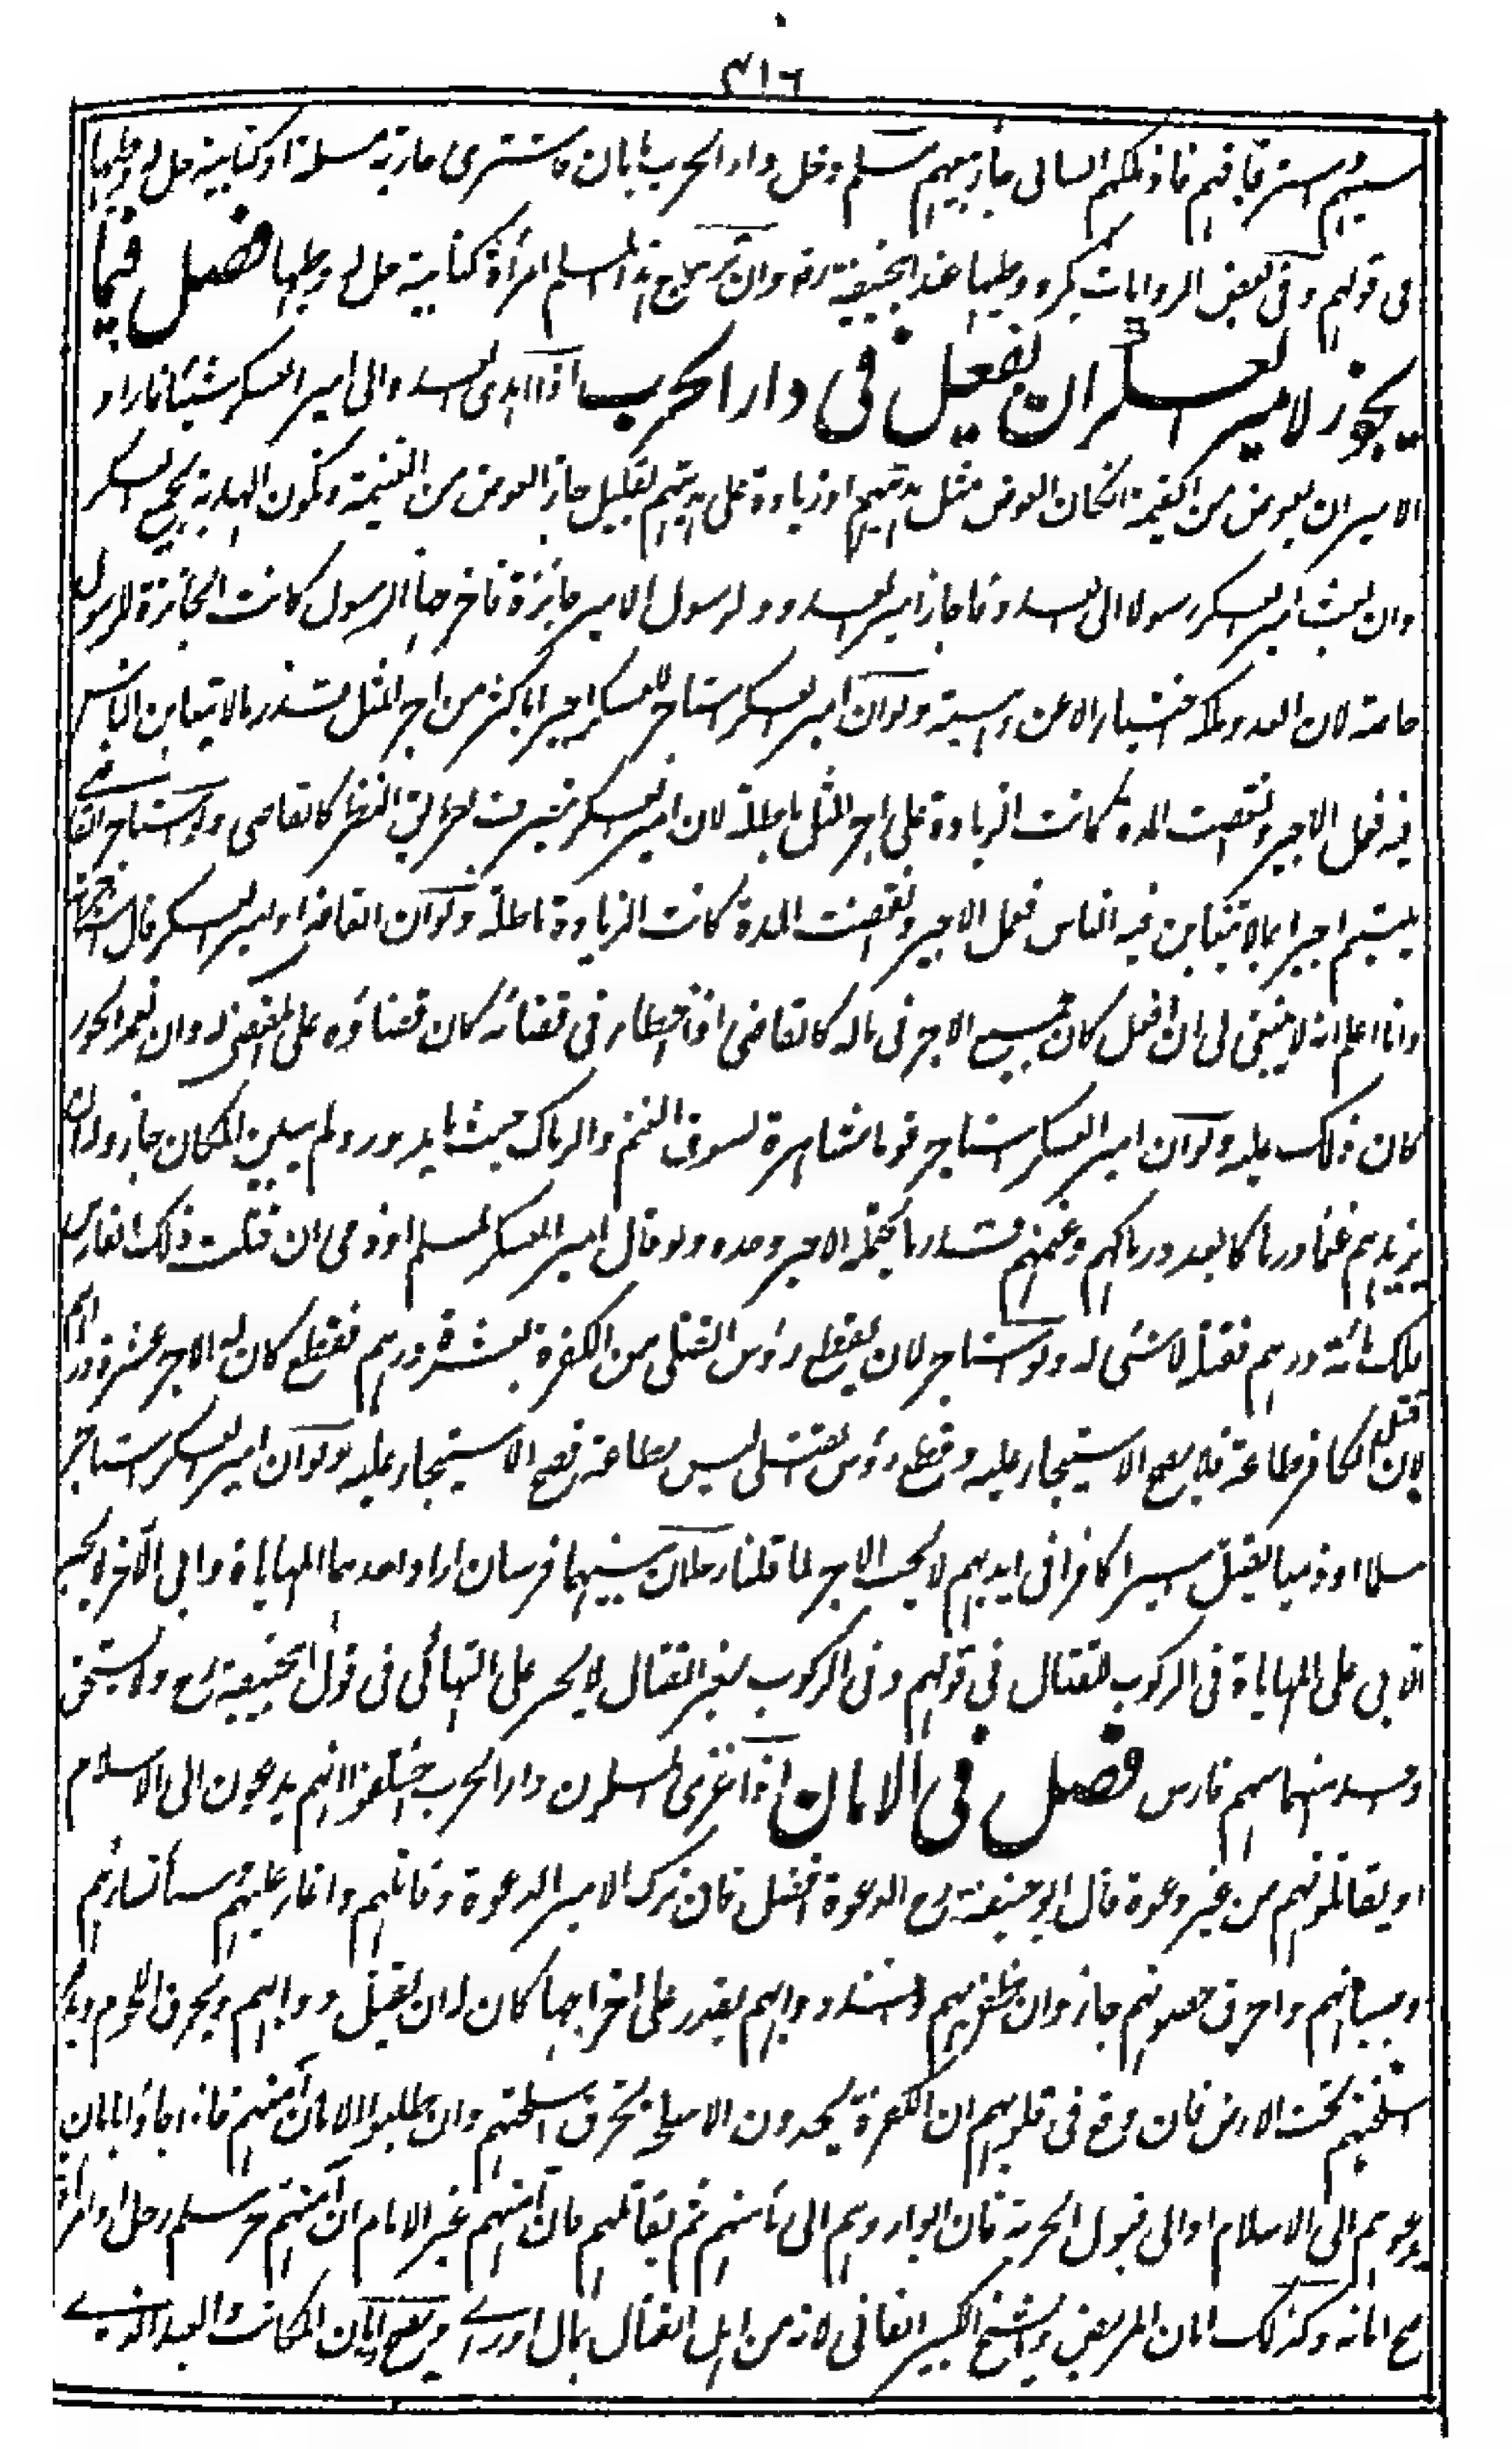 ٤١٦
سبيهم واسترقاقهم فاذا ملكهم السابي جاز بيعهم مسلم دخل دار الحرب بامان فاشترى جارية مسلمة او كتابية حل له وطيها
في قولهم وفي بعض الروايات يكره وطيها عند ابيحنيفة رح وان تزوج هذا المسلم امرأة كتابية حل له وطيها فصل فيما
يجوز لامير العسكر ان يفعل في دار الحرب اذا اهدى العدو الى امير العسكر شيئا فاراد
الامير ان يعوض من الغنيمة انكان العوض مثل هديتهم او زيادة على هديتهم بقليل جاز العوض من الغنيمة وتكون الهدية لجميع العسكر
وان بعث امير العسكر رسولا الى العدو فاجاز امير العدو لرسول الامير جائزة فاخرجها الرسول كانت الجائزة للرسول
خاصة لان العدو ملكه اختيارا لا عن رهبة ولو ان امير العسكر استاجر للعسكر اجيرا باكثر من اجر المثل قدر ما لا يتغابن الناس
فيه فعمل الاجير وانقضت المدة كانت الزيادة على اجر المثل باطلة لان امير العسكر يتصرف بطريق النظر كالقاضي ولو استاجر القاضي
لليتيم اجيرا بما لا يتغابن فيه الناس فعمل الاجير وانقضت المدة كانت الزيادة باطلة ولو ان القاضي او امير العسكر قال استاجرته
وانا اعلم انه لا ينبغي لي ان افعل كان جميع الاجر في ماله كالقاضي اذا اخطا في قضائه كان قضاؤه على المقضي له وان تعمد الجور
كان ذلك عليه ولو ان امير العسكر استاجر قوما مشاهرة لسوق الغنم والرماك حيث ما يدور ولم يبين المكان جاز ولو ان
يزيدهم غنما ورماكا بعد رماكهم وغنمهم قدر ما يحتمله الاجير وحده ولو قال امير العسكر لمسلم او ذمي ان قتلت ذلك الفارس
فلك مائة درهم فقتله لا شئ له ولو استاجر لان يقطع رؤس القتلى من الكفرة بعشرة درهم فقطع كان له الاجر عشرة دراهم
لان قتل الكافر طاعة فلا يصح الاستيجار عليه وقطع رؤس القتلى ليس بطاعة فصح الاستيجار عليه ولو ان امير العسكر استاجر
مسلما او ذميا ليقتل اسيرا كافرا في ايديهم لا يجب الاجر لما قلنا رجلان بينهما فرسان اراد احدهما المهاياة وابى الآخر لا يجبر
الآبي على المهاياة في الركوب للقتال في قولهم وفي الركوب لغير القتال لا يجبر على التهائي في قول ابيحنيفة رح ولا يستحق
واحد منهما سهم فارس فصل في الامان اذا غزى المسلمون دار الحرب اختلفوا انهم يدعون الى الاسلام
او يقاتلونهم من غير دعوة قال ابو حنيفة رح الدعوة افضل فان ترك الامير الدعوة وقاتلهم واغار عليهم وسبا نساءهم
وصبيانهم واحرق حصونهم جاز وان لم يقدر على اخراجها كان له ان يقتل دوابهم ويحرق اللحوم
اسلحتهم تحت الارض فان وقع في قلوبهم ان الكفرة يجدون الاسلحة تحرق اسلحتهم وان طلبوا الامان آمنهم فاذا جاؤا بالامان
يدعوهم الى الاسلام او الى قبول الجزية فان ابوا ردهم الى مأمنهم ثم يقاتلهم فان آمنهم غير الامام ان آمنهم حر مسلم رجل او امرأة
صح امانه وكذلك امان المريض والشيخ الكبير الفاني لانه من اهل القتال بمال او رأي ويصح امان المكاتب والعبد الذي